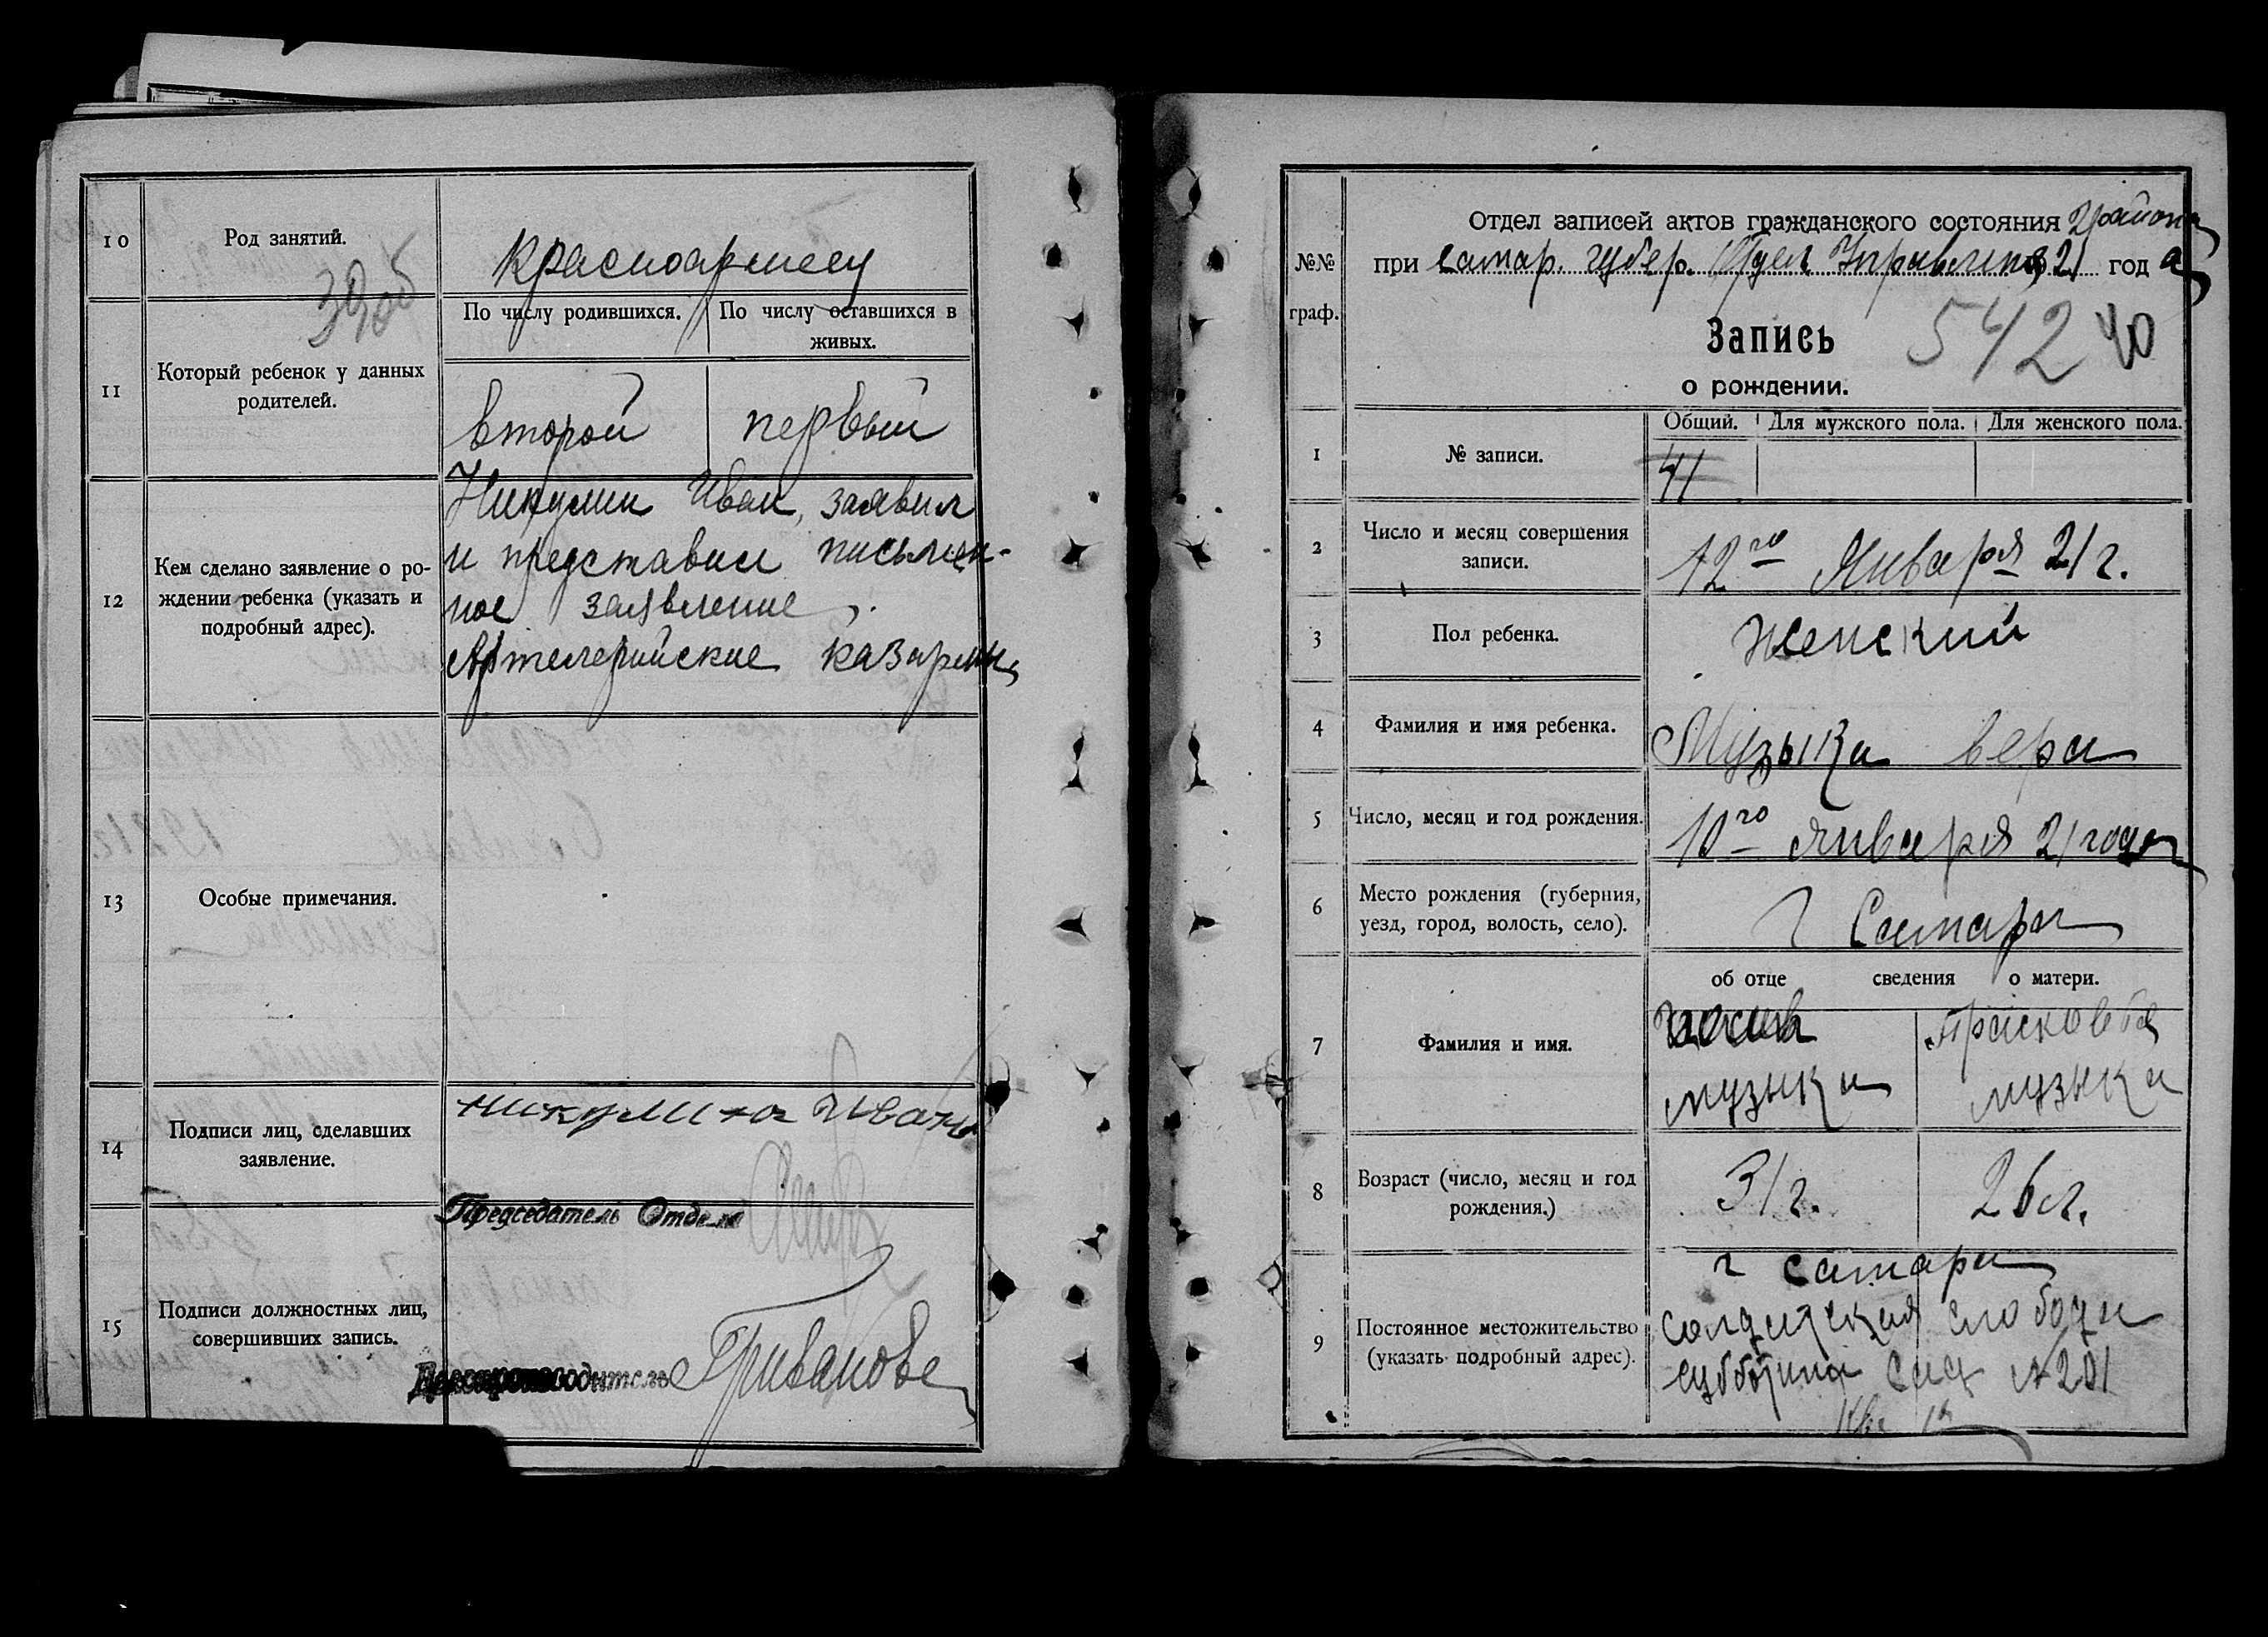 10
Род занятий.
39об
красноармеец
11
Который ребенок у данных
родителей.
По числу родившихся.
По числу оставшихся в
живых.
второй
первый
12
Кем сделано заявление о ро-
ждении ребенка (указать и
подробный адрес).
Никулин Иван, заявил
и представил письмен-
ное заявление.
Артелерийские казармы
13
Особые примечания.
14
Подписи лиц, сделавших
заявление.
Никулина Ивань
15
Подписи должностных лиц,
совершивших запись.
Председатель Отдела
Делопроизводитель
№№
граф.
Отдел записей актов гражданского состояния 2 района
при Самар. Губер. Отдел Управления 21 год а
Запись
о рождении.
542 40
1
№ записи.
Общий. Для мужского пола. Для женского пола.
41
2
Число и месяц совершения
записи.
12го Января 21 г.
3
Пол ребенка.
Женский
4
Фамилия и имя ребенка.
Музыка Вера
5
Число, месяц и год рождения.
10го января 21 года
6
Место рождения (губерния,
уезд, город, волость, село).
г Самара
об отце сведения о матери.
7
Фамилия и имя.
музыка
Прасковья
музыка
8
Возраст (число, месяц и год
рождения.)
31 г.
26 л.
9
Постоянное местожительство
(указать подробный адрес).
г Самара
солдатская слобода
субботина сад №201